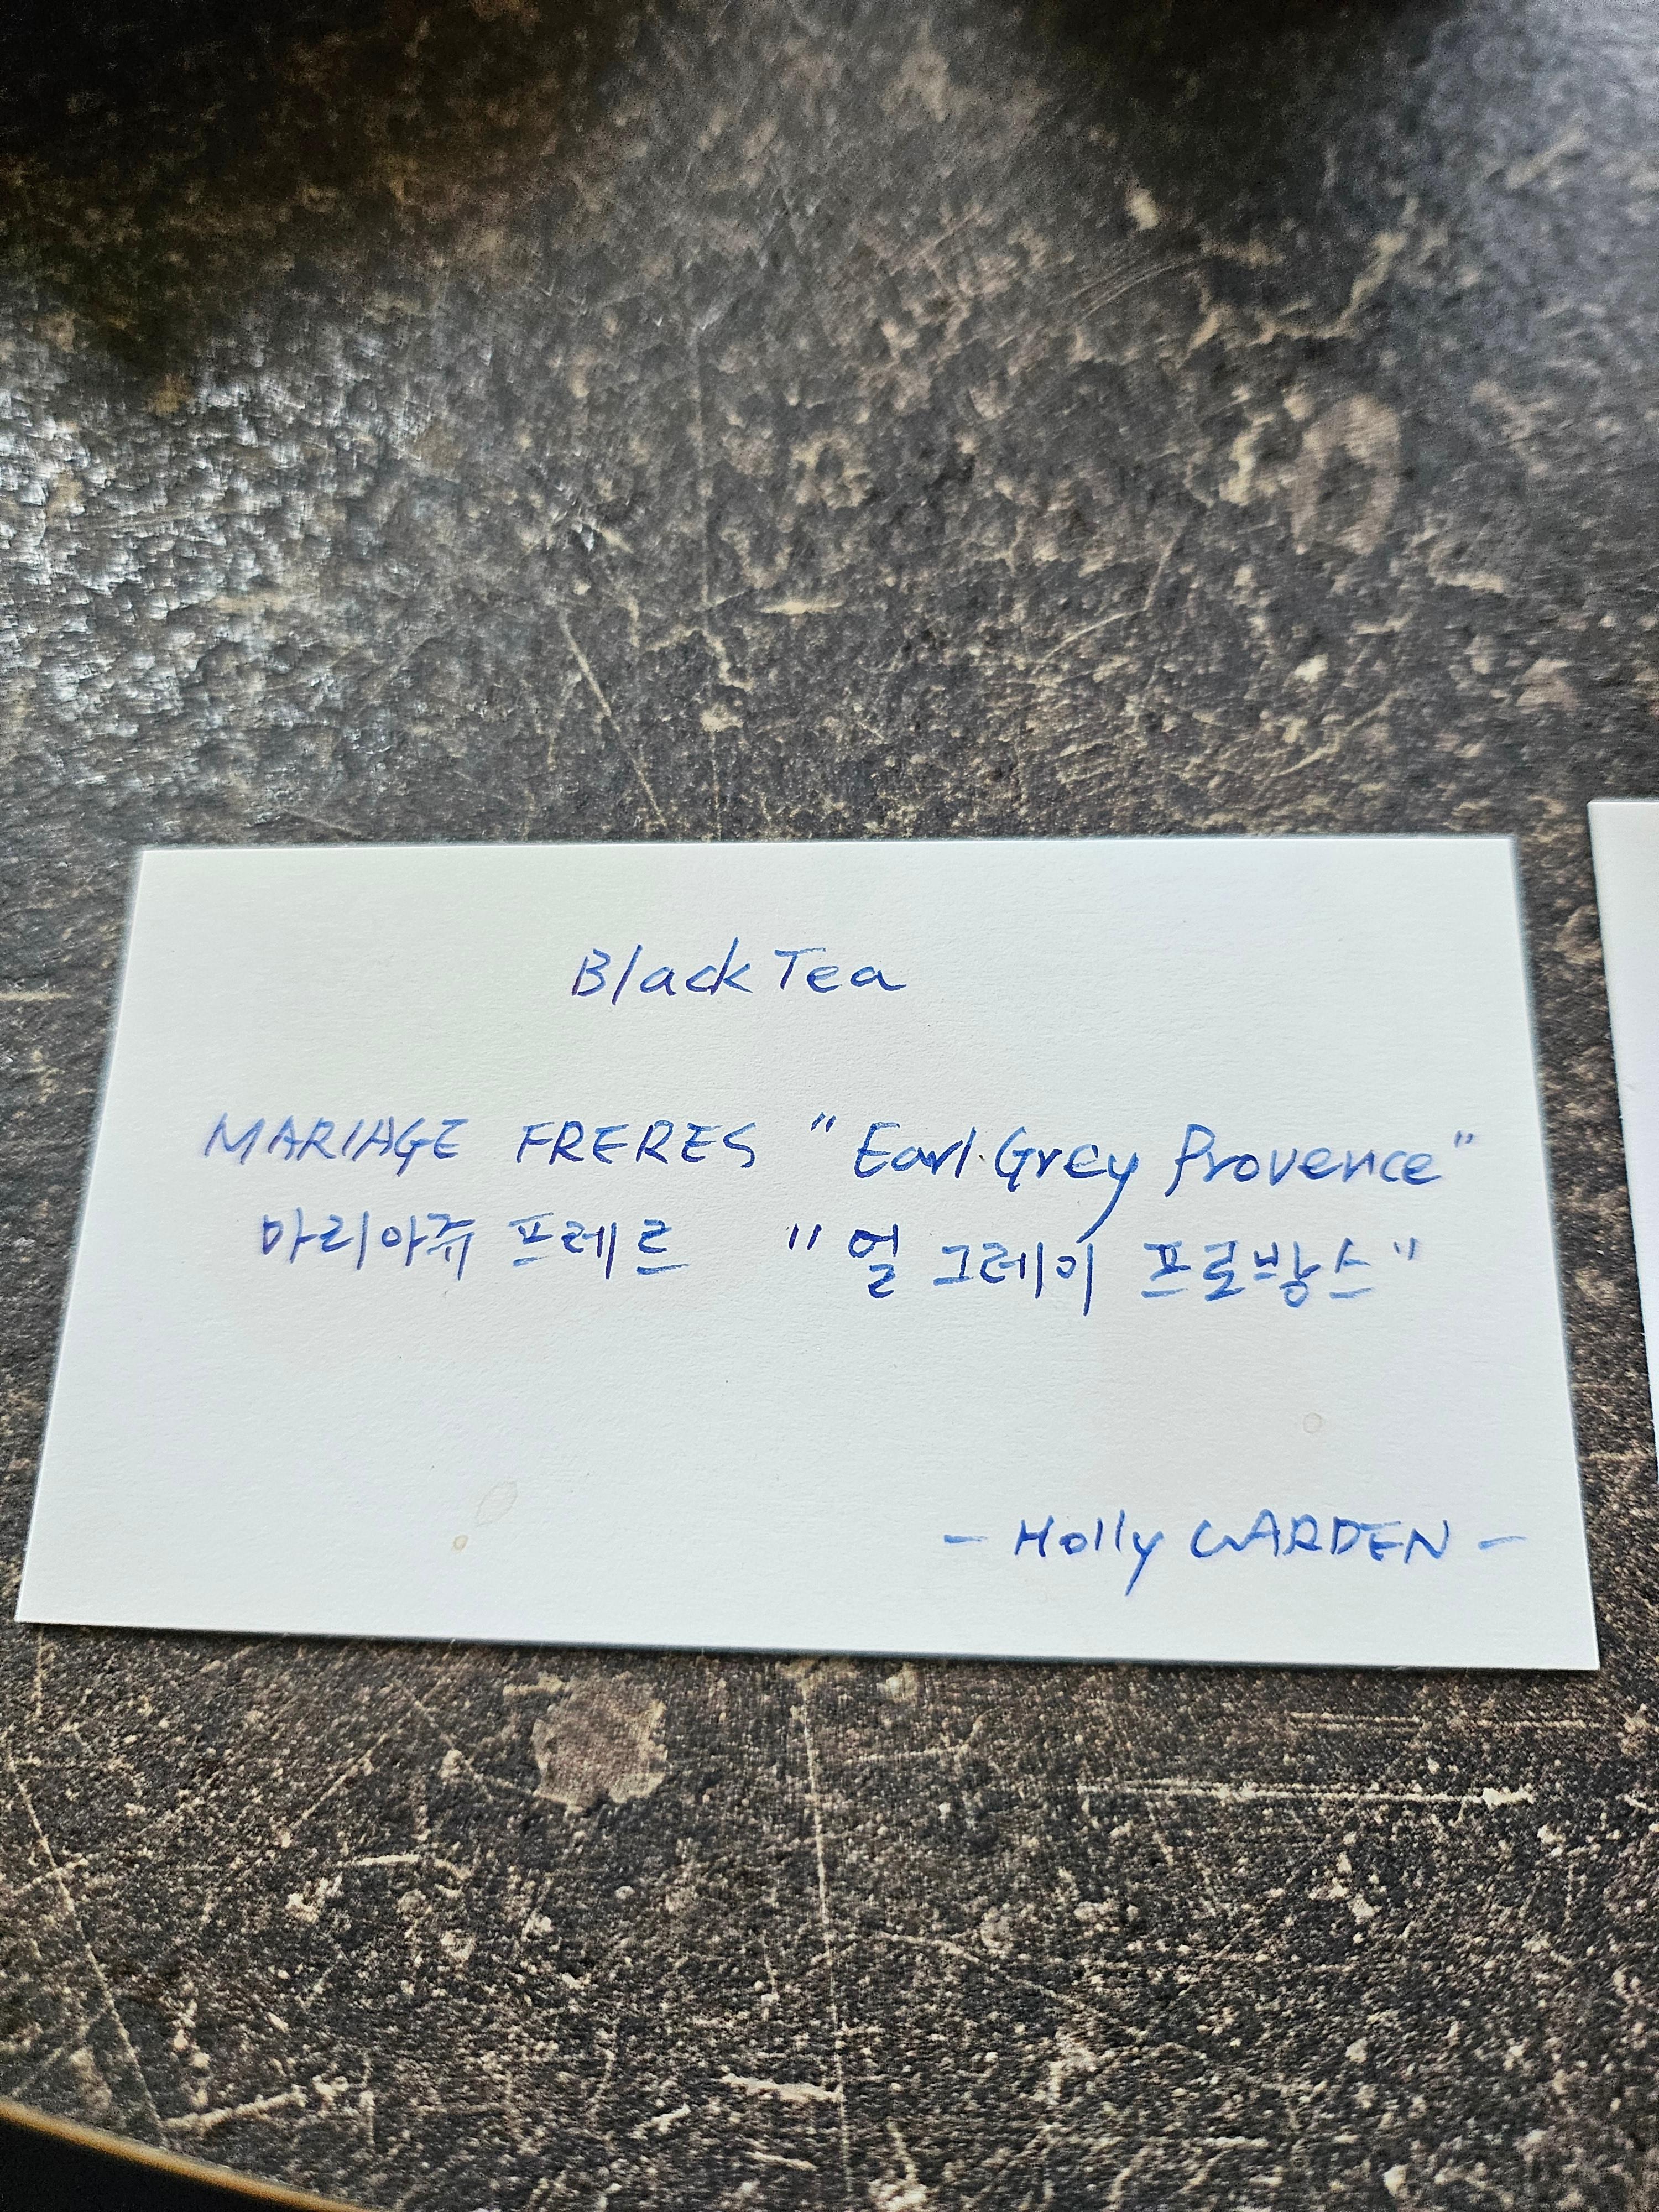 Black Tea
MARIAGE FRERES "Earl Grey Provence"
마리아쥬 프레르 "얼 그레이 프로방스"
- Holly GARDEN -